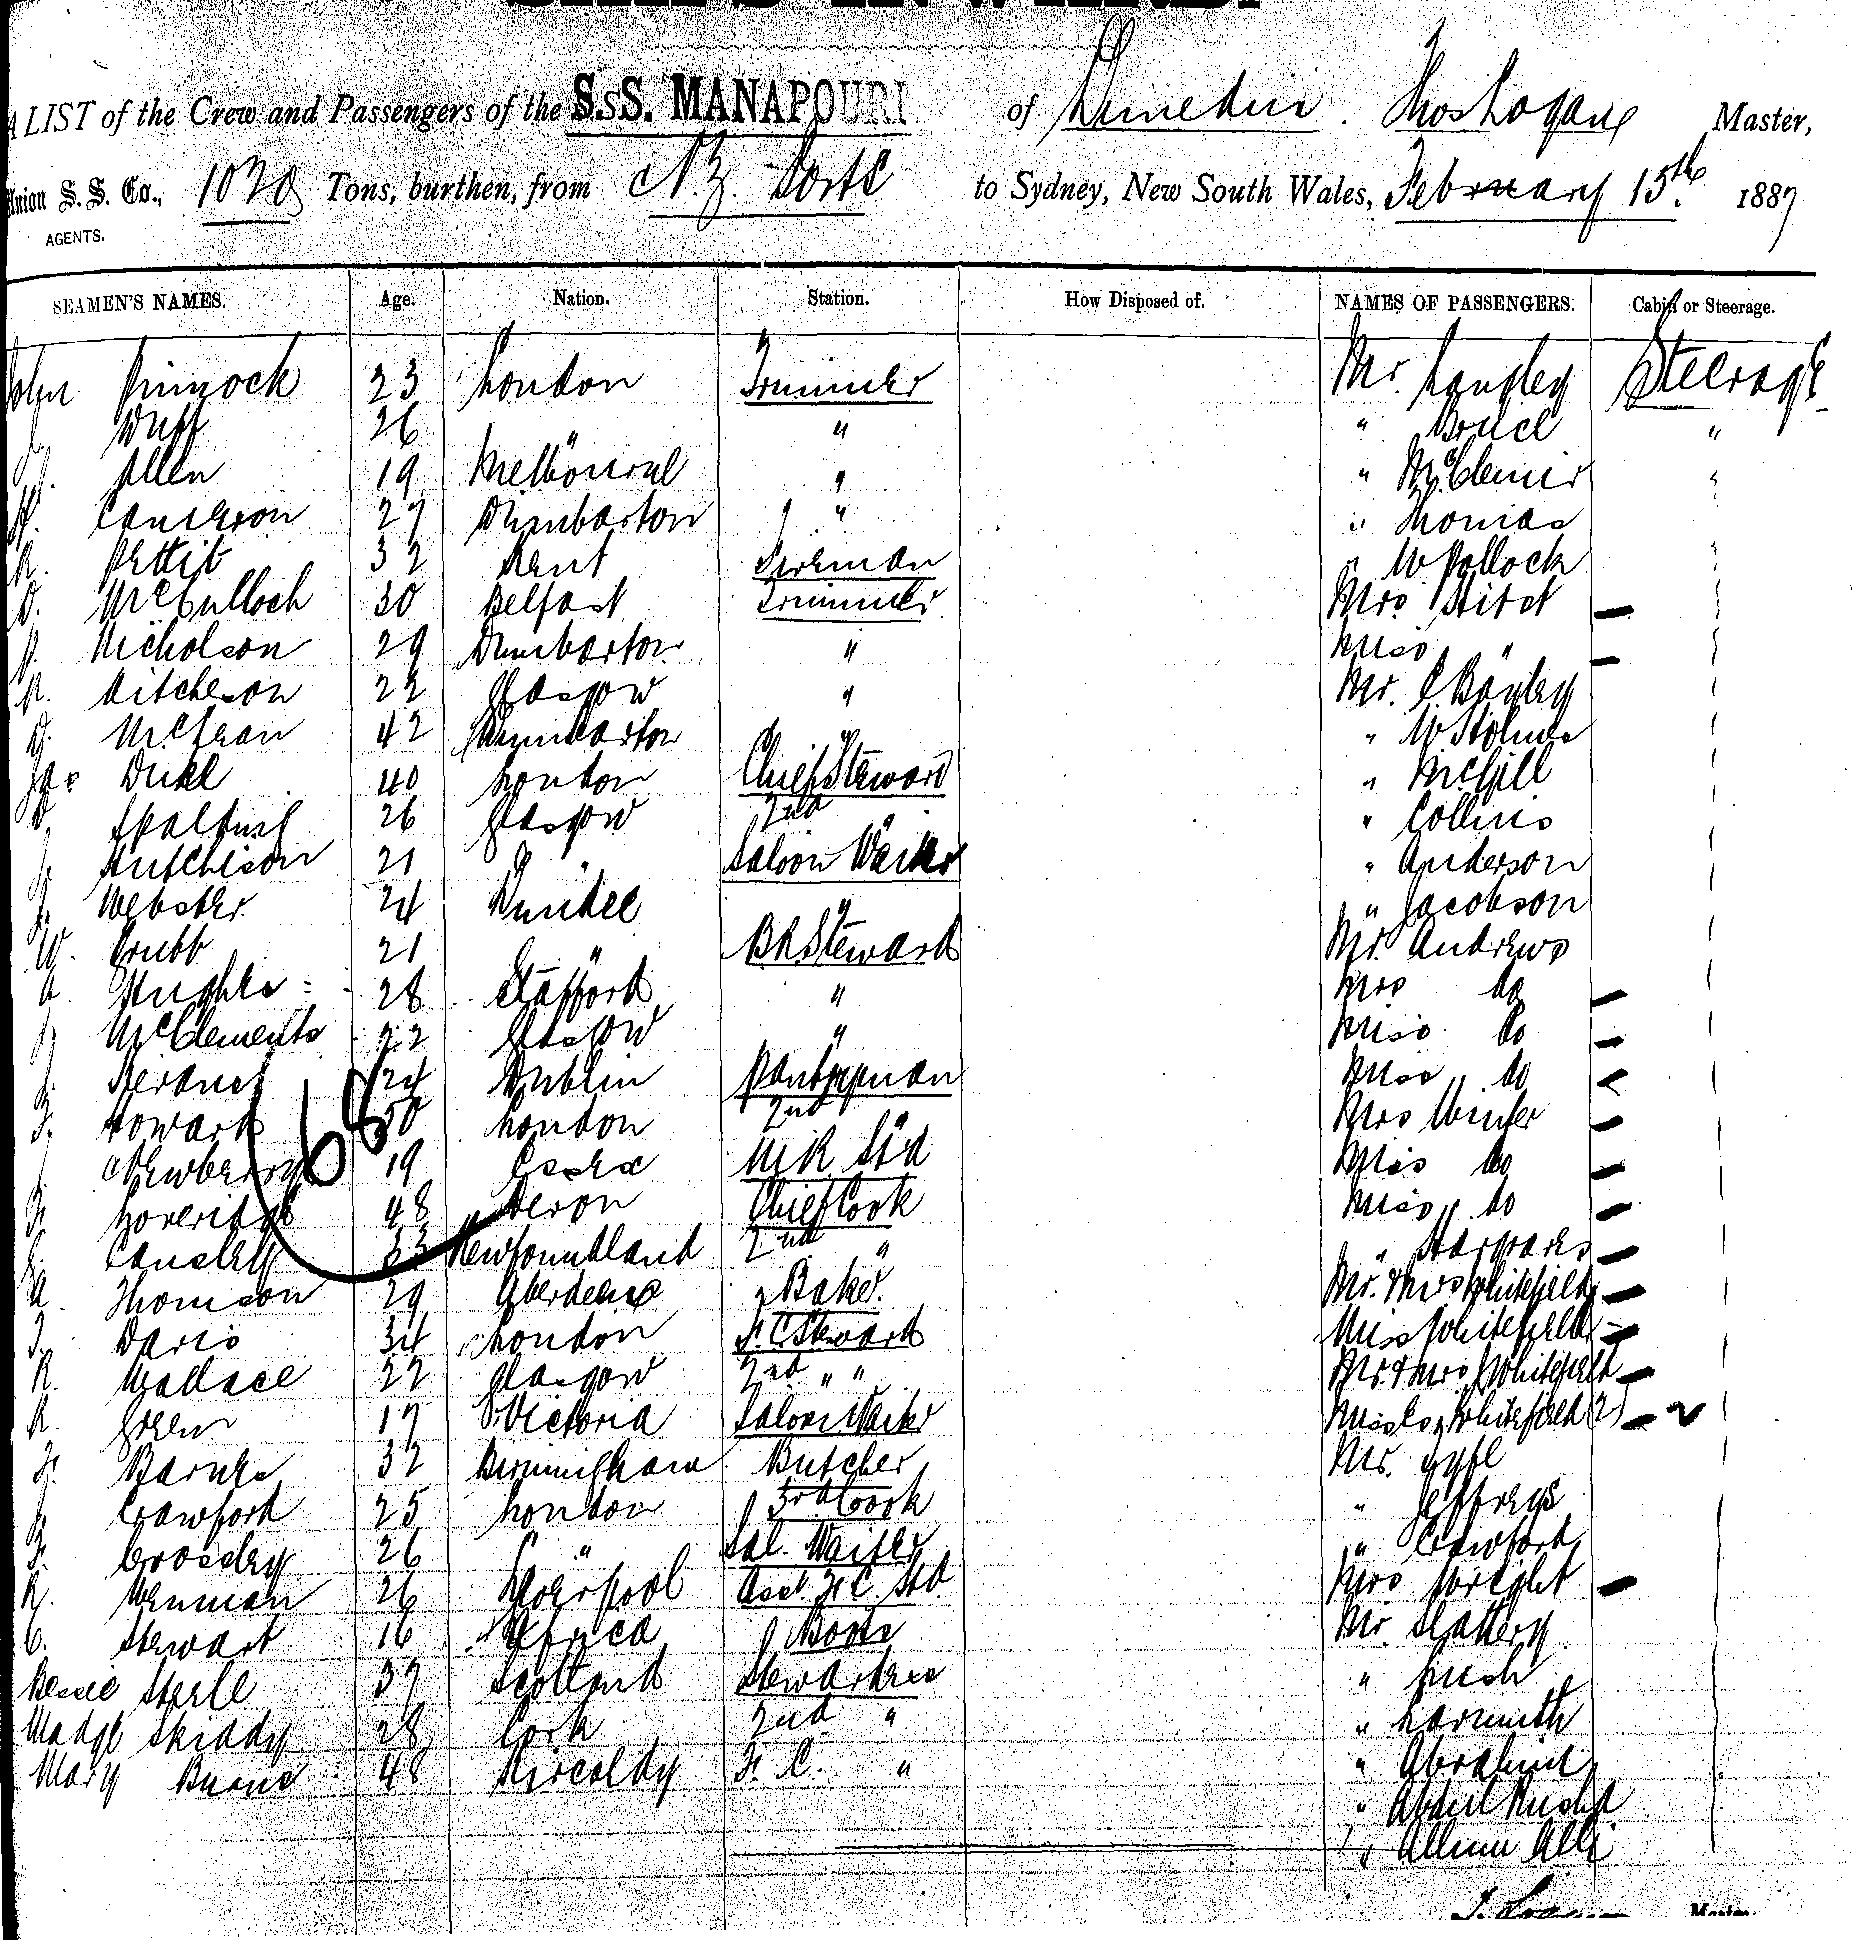 A LIST of the Crew and Passengers of the S.S. MANAPOURI of Dunedin. Thos Logan, Master,
Union S. S. Co., Tons, burthen, from N.Z. Ports to Sydney, New South Wales, February 15th 1887
AGENTS.
SEAMEN'S NAMES. Age. Nation. Station. How Disposed of. NAMES OF PASSENGERS. Cabin or Steerage.
John Pinnock 23 London Trimmer Mr. Langley Steerage
J. Duff 26 " " " Bruce "
J. Allen 19 Melbourne " " "
Cameron 27 Dumbarton " " Thomas "
R. Pettit 32 Kent Fireman " W Pollock "
D. McCulloch 30 Belfast Trimmer Mrs
Nicholson 29 Dumbarton " Miss "
R. Aitcheson 22 Glasgow " Mr. C Bayley
McLean 42 Dumbarton " " W Holmes
Jas Duke 40 London Chief Steward " McGill
26 Glasgow 2nd " " Collins
J. Hutchison 21 " Saloon Waiter " Anderson
J. Webster 24 Dundee " " Jacobson
W. Grubb 21 " B R Steward Mr. Andrews
A. Hughes 28 Stafford " Mrs do
McClements 22 Glasgow " Miss do
24 Dublin Pantryman Miss " do
68
F. Howard 50 London 2nd " Mrs Winter
Newberry 19 Essex M R Std Miss do
F. Loveridge 48 Devon Chief Cook Miss " do
33 Newfoundland 2nd " " Hargraves
A. Thomson 29 Aberdeen Baker Mr. & Mrs Whitefield
T. Davis 34 London F. C Steward Miss Whitefield
R. Wallace 22 Glasgow 2nd " " Mr. & Mrs J Whitefield
R. Green 17 Victoria Saloon Waiter Misses Whitefield (2) 2
F. Barnes 32 Birmingham Butcher Mr.
J. Crawford 25 London 3rd Cook " Jeffreys
F. Crossley 26 " Sal. Waiter " Crawford
R. Wenman 26 Liverpool Asst. F. C. Std. Mrs Wright
C. Stewart 16 Africa Boots Mr. Slattery
Bessie Steele 37 Scotland Stewardess " Lush
Madge Skiddy 28 Cork 2nd " " Larmuth
Mary Burns 48 Kircaldy F. C. " "
" Abdul
" Alli
Master.